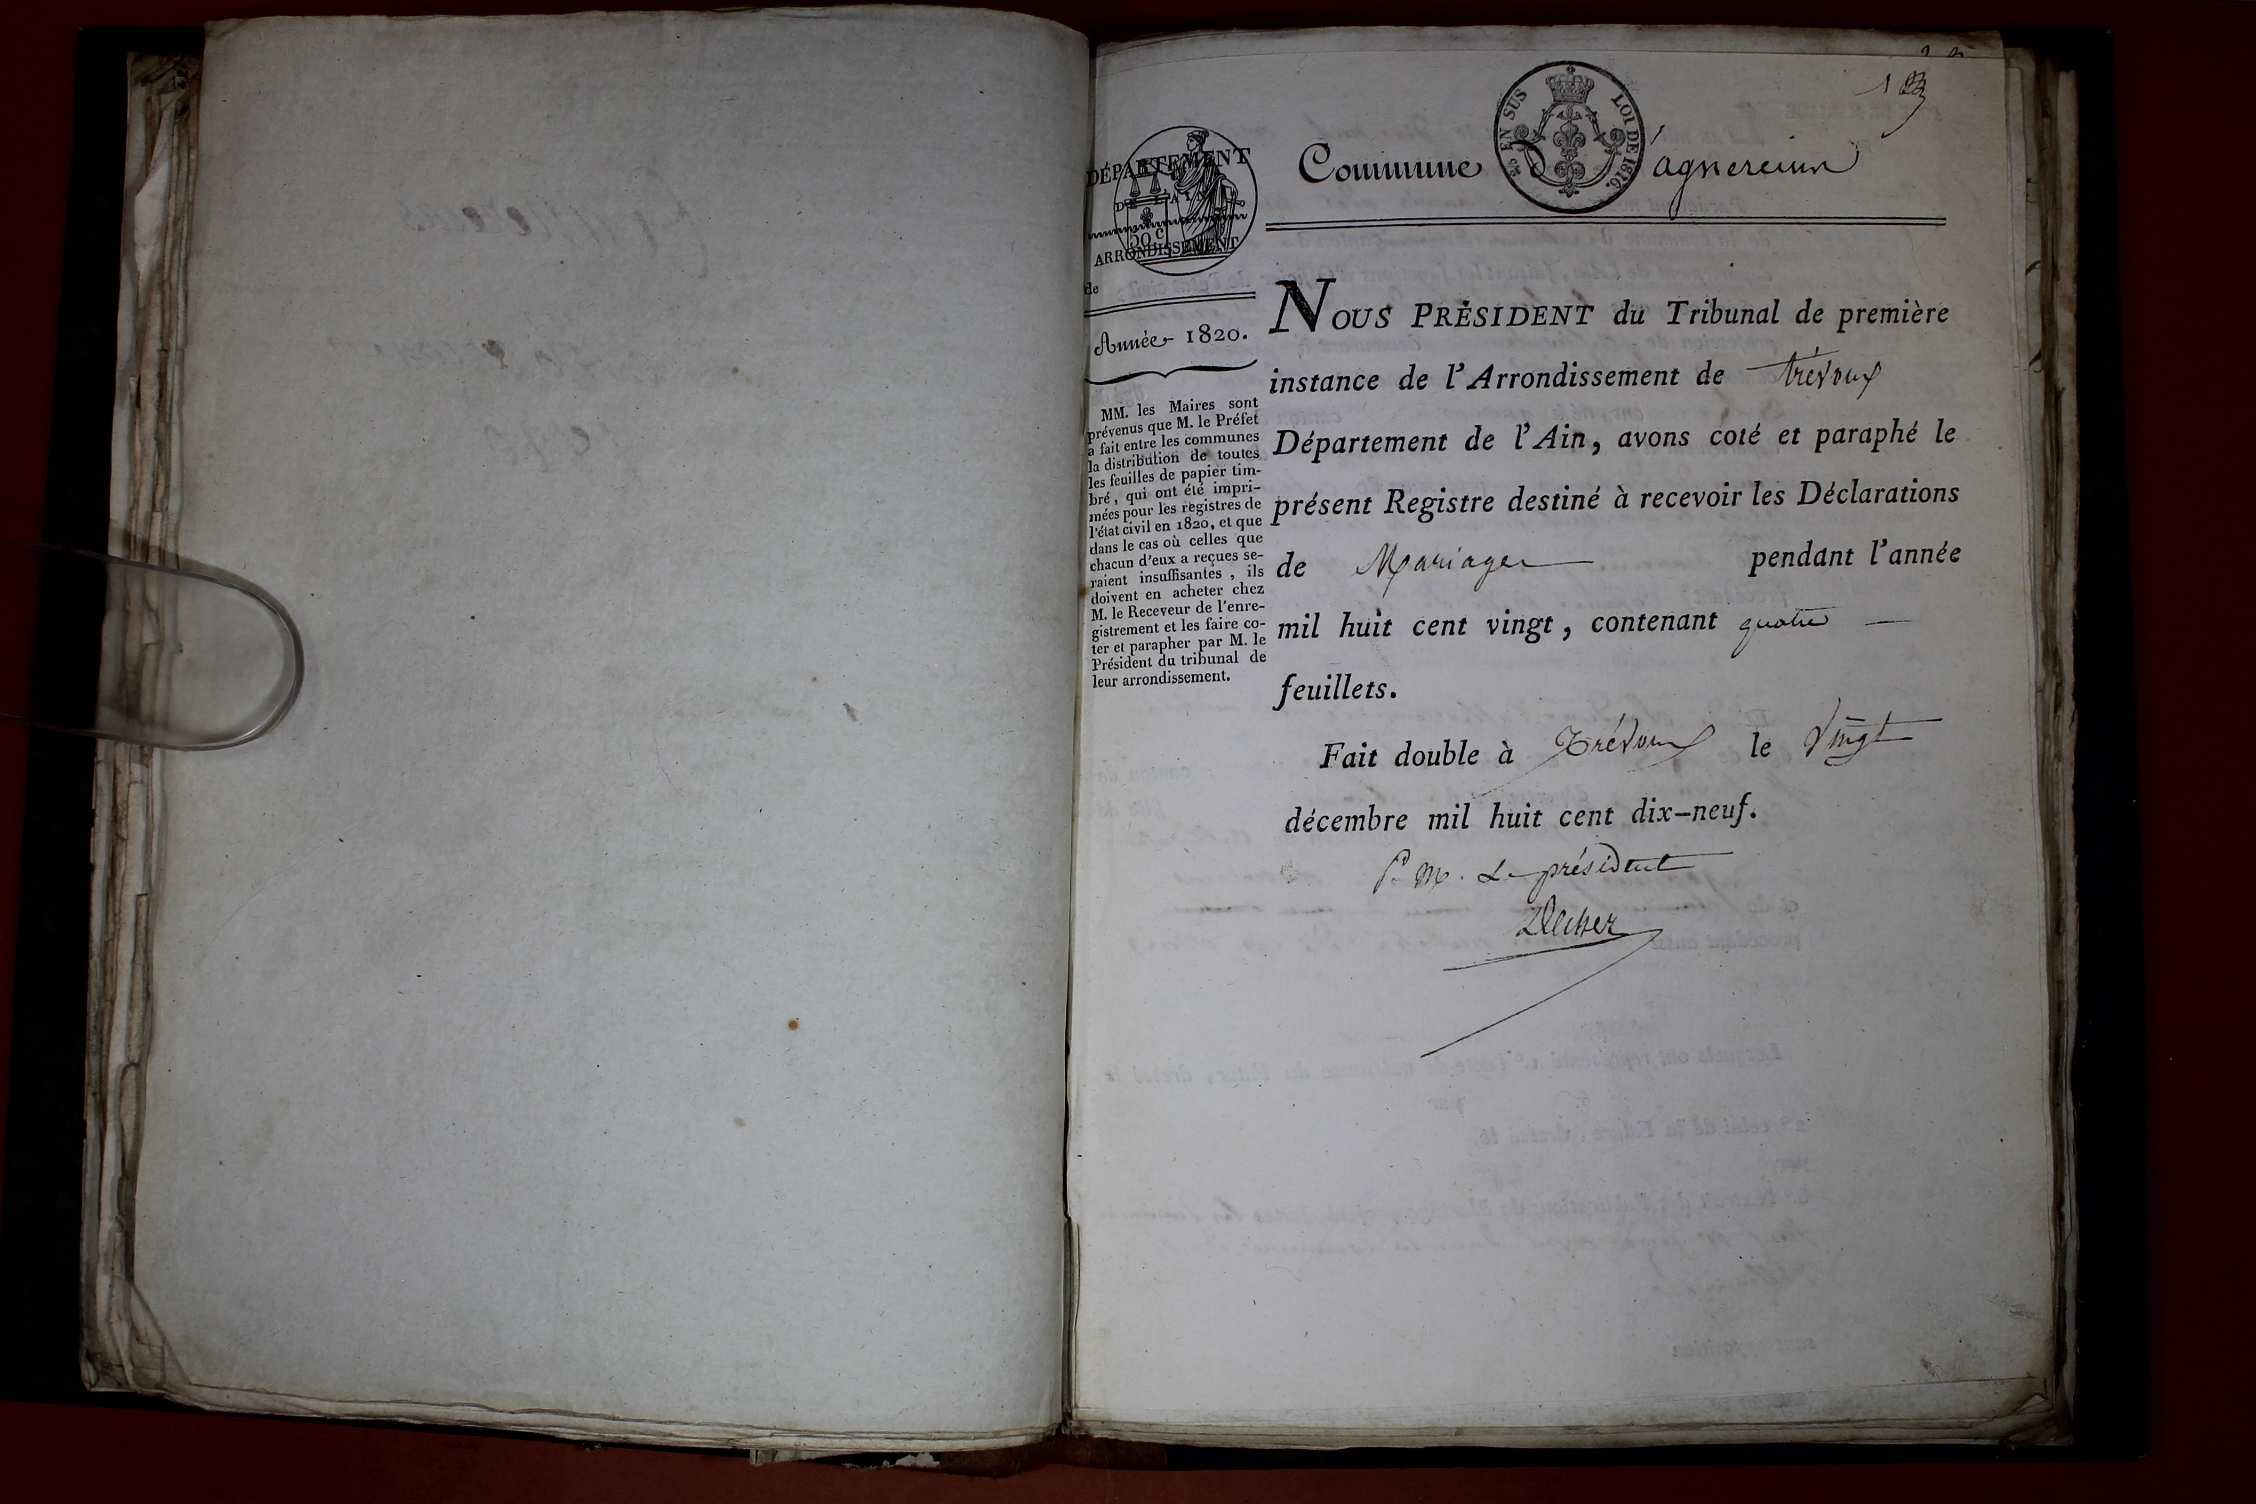 DÉPARTEMENT
DE L'AI
50 C
ARRONDISSEMENT
de
Année 1820.
MM. les Maires sont
prévenus que M. le Préfet
a fait entre les communes
la distribution de toutes
les feuilles de papier tim-
bré, qui ont été impri-
mées pour les registres de
l'état civil en 1820, et que
dans le cas où celles que
chacun d'eux a reçues se-
raient insuffisantes, ils
doivent en acheter chez
M. le Receveur de l'enre-
gistrement et les faire co-
ter et parapher par M. le
Président du tribunal de
leur arrondissement.
EN SUS LOI DE 1816.
Commune d'agnereins
NOUS PRÉSIDENT du Tribunal de première
instance de l'Arrondissement de trévoux
Département de l'Ain, avons coté et paraphé le
présent Registre destiné à recevoir les Déclarations
de Mariages pendant l'année
mil huit cent vingt, contenant quatre
feuillets.
Fait double à Trévoux le vingt
décembre mil huit cent dix-neuf.
Pr M. Le président